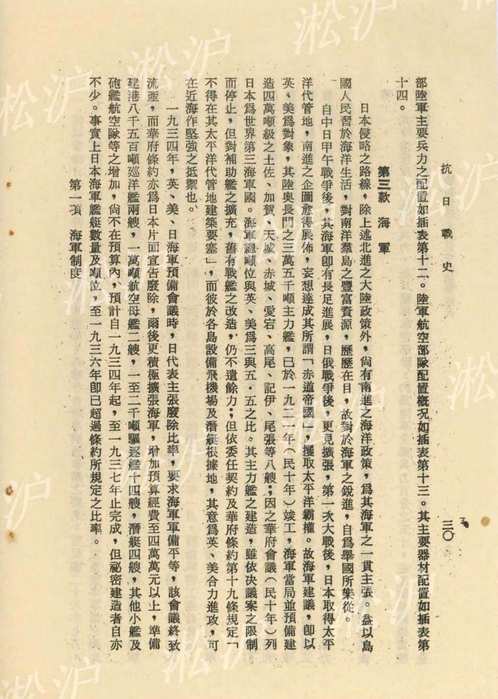 抗日戰史
三〇
部陸軍主要兵力之配置如插表第十二。陸軍航空部隊配置概況如插表第十三。其主要器材配置如插表第
十四。
第三款　海軍
日本侵略之路線，除上述北進之大陸政策外，尙有南進之海洋政策，爲其海軍之一貫主張。蓋以島
國人民習於海洋生活，對南洋羣島之豐富資源，歷歷在目，故對於海軍之銳進，自爲舉國所集從。
自中日甲午戰爭後，其海軍卽有長足進展，日俄戰爭後，更見擴張，第一次大戰後，日本取得太平
洋代管地，南進之企圖愈得展佈，妄想達成其所謂「赤道帝國」，攫取太平洋霸權。故海軍建議，卽以
英、美爲對象，其陸奧長門之三萬五千噸主力艦，已於一九二一年（民十年）竣工，海軍當局並預備建
造四萬噸級之土佐、加賀、天城、赤城、愛宕、高尾、記伊、尾張等八艘；因之華府會議（民十年）列
日本爲世界第三海軍國。海軍艦噸位與英、美爲三與五．五之比。其主力艦之建造，雖依決議案之限制
而停止，但對補助艦之擴充，舊有戰艦之改造，仍不遺餘力；但依委任契約及華府條約第十九條規定「
不得在其太平洋代管地建築要塞」，而彼於各島設備飛機場及潛艇根據地，其意爲英、美合力進攻，可
在近海作堅強之抵禦也。
一九三四年，英、美、日海軍預備會議時，日代表主張廢除比率，要求海軍軍備平等，該會議終致
流產，而華府條約亦爲日本片面宣告廢除，爾後更積極擴張海軍，增加預算經費至四萬萬元以上，準備
建港八千五百噸巡洋艦兩艘，一萬噸航空母艦二艘，一至二千噸驅逐艦十四艘，潛艇四艘，其他小艦及
砲艦航空隊等之增加，尙不在預算內，預計自一九三四年起，至一九三七年止完成，但祕密建造者自亦
不少。事實上日本海軍艦艇數量及噸位，至一九三六年卽已超過條約所規定之比率。
第一項　海軍制度
淞沪